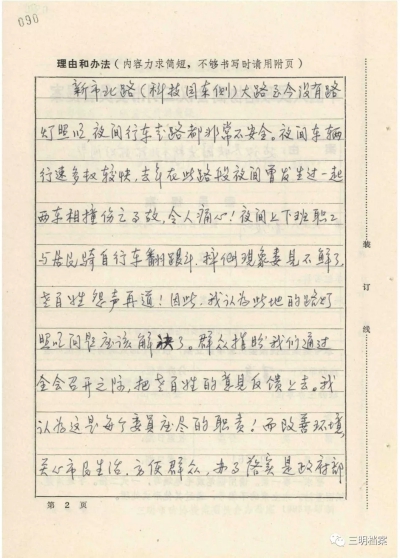 090
理由和办法（内容力求简短，不够书写时请用附页）
新市北路（科技园东侧）大路至今没有路
灯照明，夜间行车走路都非常不安全。夜间车辆
行速多权较快，去年在此路段夜间曾发生过一起
两车相撞伤亡事故，令人痛心！夜间上下班职工
与居民骑自行车翻跟斗、摔倒现象娄见不鲜了，
老百姓怨声再道！因此，我认为此地的路灯
照明问题应该解决了。群众指盼我们通过
全会召开之际，把老百姓的意见反馈上去。我
认为这是每个委员应尽的职责！而改善环境，
关心市民生活，方便群众，办了落实是政府部
装订线
第 2 页
三明档案